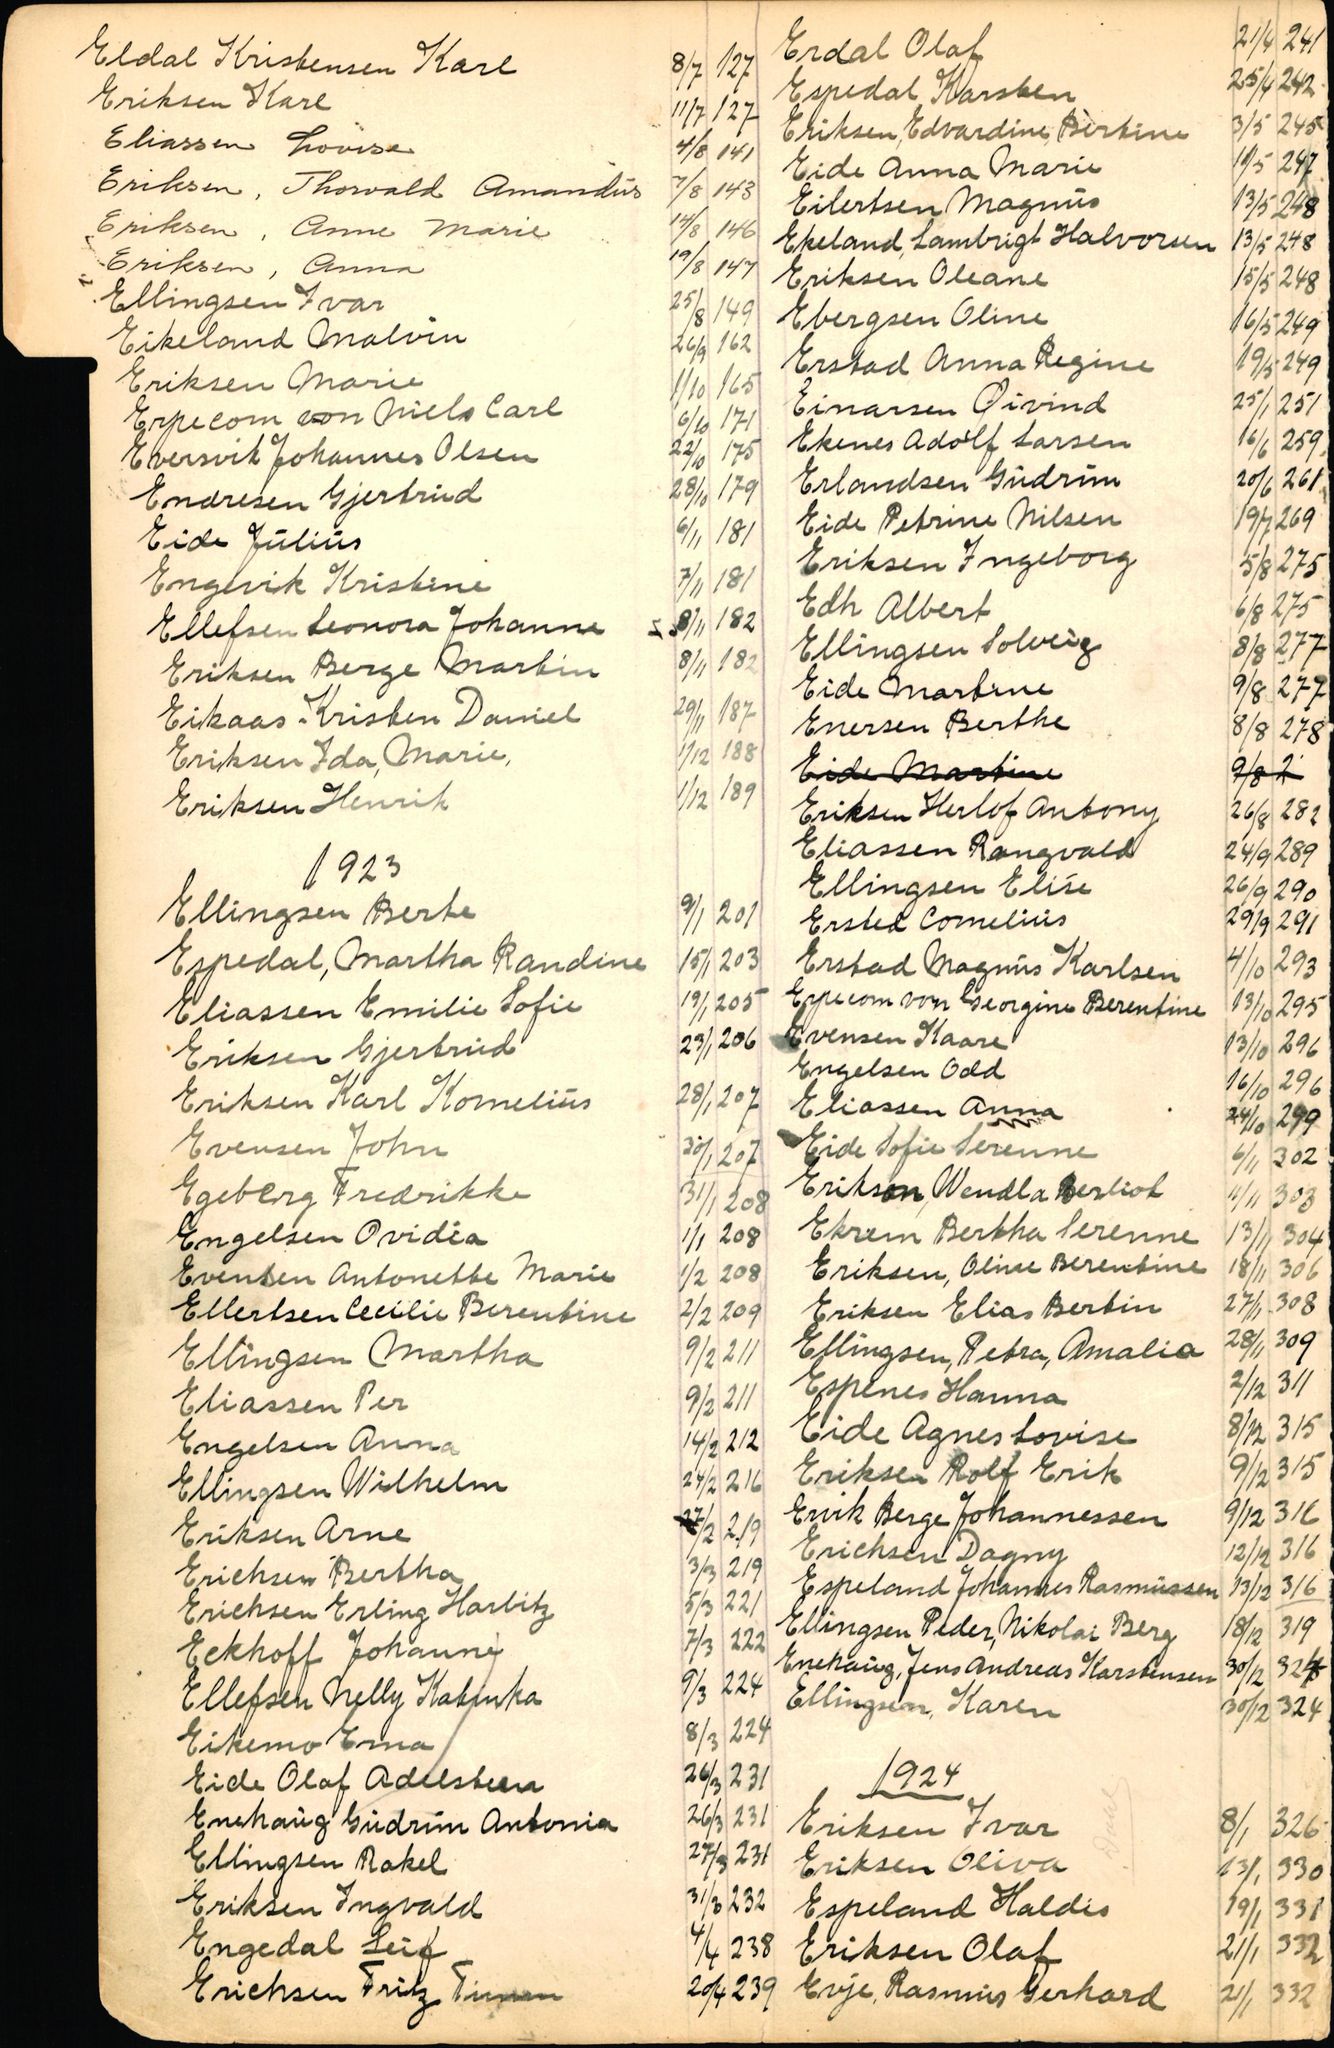 Eldal Kristensen Karl 8/7 127
Eriksen Kare 11/7 127
Eliassen Lovise 4/8 141
Eriksen, Thorvald Amandus 7/8 143
Eriksen, Anne Marie 14/8 146
Eriksen, Anna 19/8 147
Ellingsen Ivar 25/8 149
Eikeland Malvin 26/9 162
Eriksen Marie 1/10 165
Erpecom von Niels Carl 6/10 171
Eversvik Johannes Olsen 22/10 175
Endresen Gjertrud 28/10 179
Eide Julius 6/11 181
Engevik Kristine 7/11 181
Ellefsen Leonora Johanne 8/11 182
Eriksen Berge Martin 8/11 182
Eikaas Kristen Daniel 29/11 187
Eriksen Ida, Marie, 1/12 188
Eriksen Henrik 1/12 189
1923
Ellingsen Berte 9/1 201
Espedal, Martha Randine 15/1 203
Eliassen Emilie Sofie 19/1 205
Eriksen Gjertrud 23/1 206
Eriksen Karl Kornelius 28/1 207
Evensen John 30/1 207
Egeberg Fredrikke 31/1 208
Engelsen Ovidia 1/1 208
Evensen Antonette Marie 1/2 208
Ellertsen Cecilie Berentine 2/2 209
Ellingsen Martha 9/2 211
Eliassen Per 9/2 211
Engelsen Anna 14/2 212
Ellingsen Wilhelm 24/2 216
Eriksen Arne 27/2 219
Erichsen Bertha 3/3 219
Erichsen Erling Harbitz 5/3 221
Eckhoff Johanne 7/3 222
Ellefsen Nelly Katinka 9/3 224
Eikemo Erna 8/3 224
Eide Olaf Adelsteen 26/3 231
Enehaug Gudrun Antonia 26/3 231
Ellingsen Rakel 27/3 231
Eriksen Ingvald 31/3 232
Engedal Leif 4/4 238
Erichsen Fritz 20/4 239
Erdal Olaf 21/4 241
Espedal Karsten 25/4 242
Eriksen, Edvardine, Bertine 3/5 245
Eide Anna Marie 10/5 247
Eilertsen Magnus 13/5 248
Ekeland, Lambrigt Halvorsen 13/5 248
Eriksen Oleane 15/5 248
Ebergsen Oline 16/5 249
Erstad Anna Regine 19/5 249
Einarsen Øivind 25/1 251
Ekenes Adolf Larsen 16/6 259
Erlandsen Gudrun 20/6 261
Eide Petrine Nilsen 19/7 269
Eriksen Ingeborg 5/8 275
Edh Albert 6/8 275
Ellingsen Solveig 8/8 277
Eide Martine 9/8 277
Enersen Berthe 8/8 278
Eide Martine 9/8 2
Eriksen Herlof Antony 26/8 282
Eliassen Rangvald 24/9 289
Ellingsen Elise 26/9 290
Ersted Cornelius 29/9 291
Erstad Magnus Karlsen 4/10 293
Erpecom von Georgine Berentine 13/10 295
Evensen Kaare 13/10 296
Engelsen Odd 16/10 296
Eliassen Anna 24/10 299
Eide Sofie Serenne 6/11 302
Erikson, Wendla Berliot 11/11 303
Ekrem Bertha Serenne 13/11 304
Eriksen, Oline Berentine 18/11 306
Eriksen Elias Bertin 27/11 308
Ellingsen, Petra, Amalia 28/11 309
Espenes Hanna 2/12 311
Eide Agnes Lovise 8/12 315
Eriksen Rolf Erik 9/12 315
Ervik Berge Johannessen 9/12 316
Erichsen Dagny 12/12 316
Espeland Johannes Rasmussen 13/12 316
Ellingsen Peder, Nikolai Berg 18/12 319
Enehaug, Jens Andreas Karstensen 30/12 324
Ellingsen, Karen 30/12 324
1924
Eriksen Ivar 8/1 326
Eriksen Oliva 13/1 330
Espeland Haldis 19/1 331
Eriksen Olaf 21/1 332
Evje, Rasmus Gerhard 21/1 332